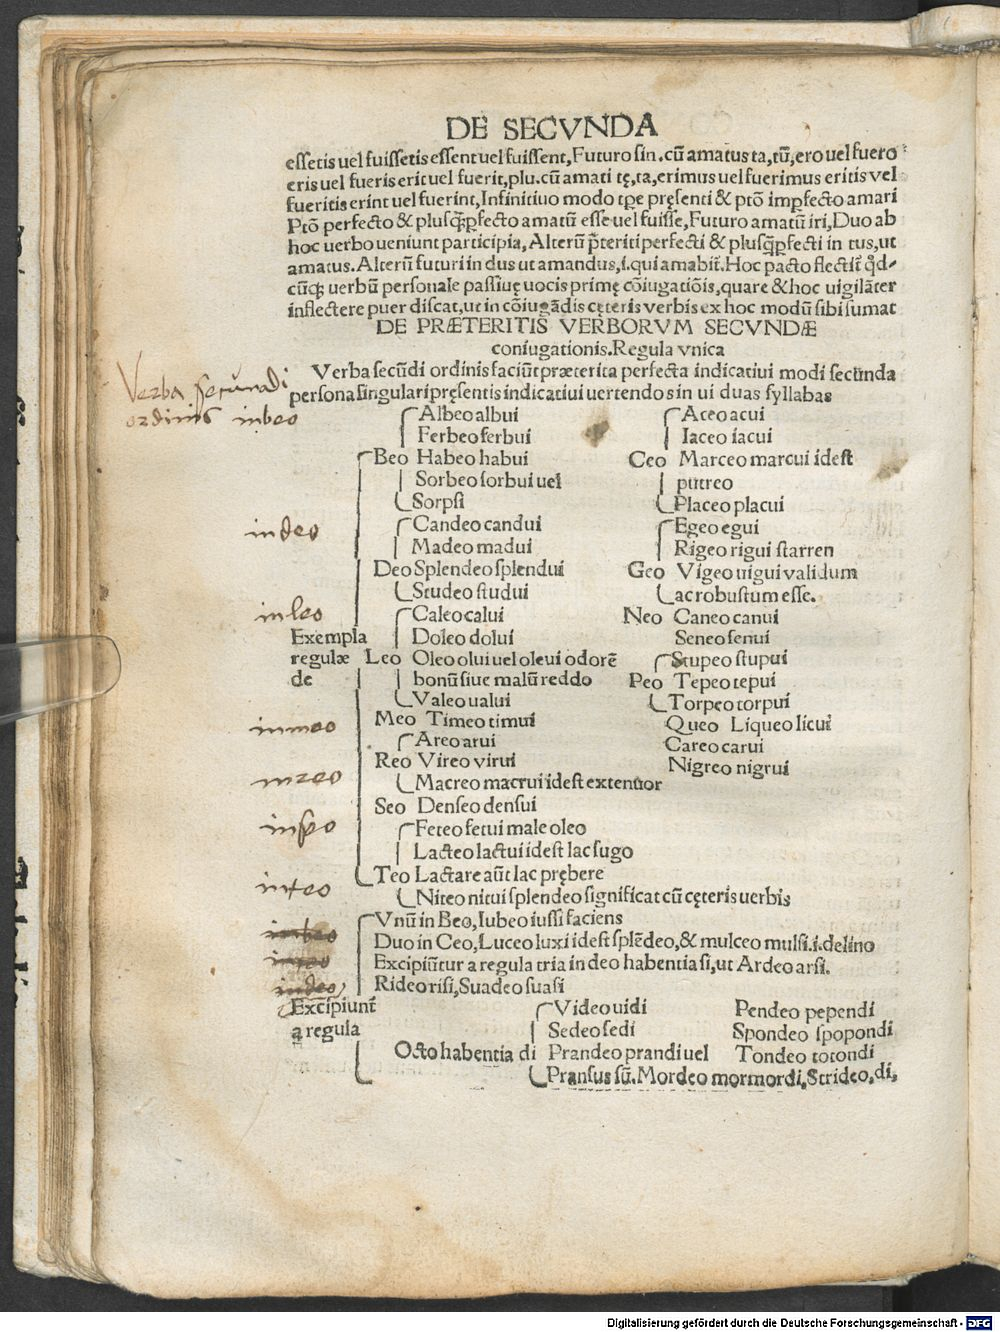 DE SECVNDA
essetis uel fuissetis essent uel fuissent, Futuro sin. cū amatus ta, tū, ero uel fuero
eris uel fueris erit uel fuerit, plu. cū amati tę, ta, erimus uel fuerimus eritis vel
fueritis erint uel fuerint, Infinitiuo modo tꝑe pręsenti & ptō imꝑfecto amari
Ptō perfecto & plusꝗ̄ꝑfecto amatū esse uel fuisse, Futuro amatū iri, Duo ab
hoc uerbo ueniunt participia, Alterū p̄teriti perfecti & plusꝗ̄ꝑfecti in tus, ut
amatus. Alterū futuri in dus ut amandus, i. qui amabit̄. Hoc pacto flectit̄ qd-
cūqꝫ uerbū personale passiuę uocis primę cōiugatiōis, quare & hoc uigilāter
inflectere puer discat, ut in cōiugādis cęteris verbis ex hoc modū sibi sumat
DE PRÆTERITIS VERBORVM SECVNDÆ
coniugationis. Regula vnica
Verba secūdi ordinis faciūt præterita perfecta indicatiui modi secūnda
persona singulari pręsentis indicatiui uertendo s in ui duas syllabas
Verba secundi
ordinis inbeo
Albeo albui
Ferbeo ferbui
Beo Habeo habui
Sorbeo sorbui uel
Sorpsi
Aceo acui
Iaceo iacui
Ceo Marceo marcui idest
putreo
Placeo placui
indeo
Candeo candui
Madeo madui
Deo Splendeo splendui
Studeo studui
Egeo egui
Rigeo rigui starren
Geo Vigeo uigui validum
ac robustum esse.
inleo
Exempla
regulæ
de
Caleo calui
Doleo dolui
Leo Oleo olui uel oleui odorē
bonū siue malū reddo
Valeo ualui
Neo Caneo canui
Seneo senui
Stupeo stupui
Peo Tepeo tepui
Torpeo torpui
inmeo
Meo Timeo timui
Queo Liqueo licui
Areo arui
Careo carui
inreo
Reo Vireo virui
Nigreo nigrui
Macreo macrui idest extenuor
Seo Denseo densui
inseo
Feteo fetui male oleo
Lacteo lactui idest lac sugo
inteo
Teo Lactare aūt lac prębere
Niteo nitui splendeo significat cū cęteris uerbis
inbeo
Vnū in Beo, Iubeo iussi faciens
Duo in Ceo, Luceo luxi idest splēdeo, & mulceo mulsi. i. delino
Excipiūtur a regula tria in deo habentia si, ut Ardeo arsi.
indeo
Rideo risi, Suadeo suasi
Excipiunt̄
a regula
Octo habentia di
Video uidi
Sedeo sedi
Prandeo prandi uel
Pransus sū. Mordeo mormordi, Strideo, di,
Pendeo pependi
Spondeo spopondi
Tondeo totondi
Digitalisierung gefördert durch die Deutsche Forschungsgemeinschaft - DFG